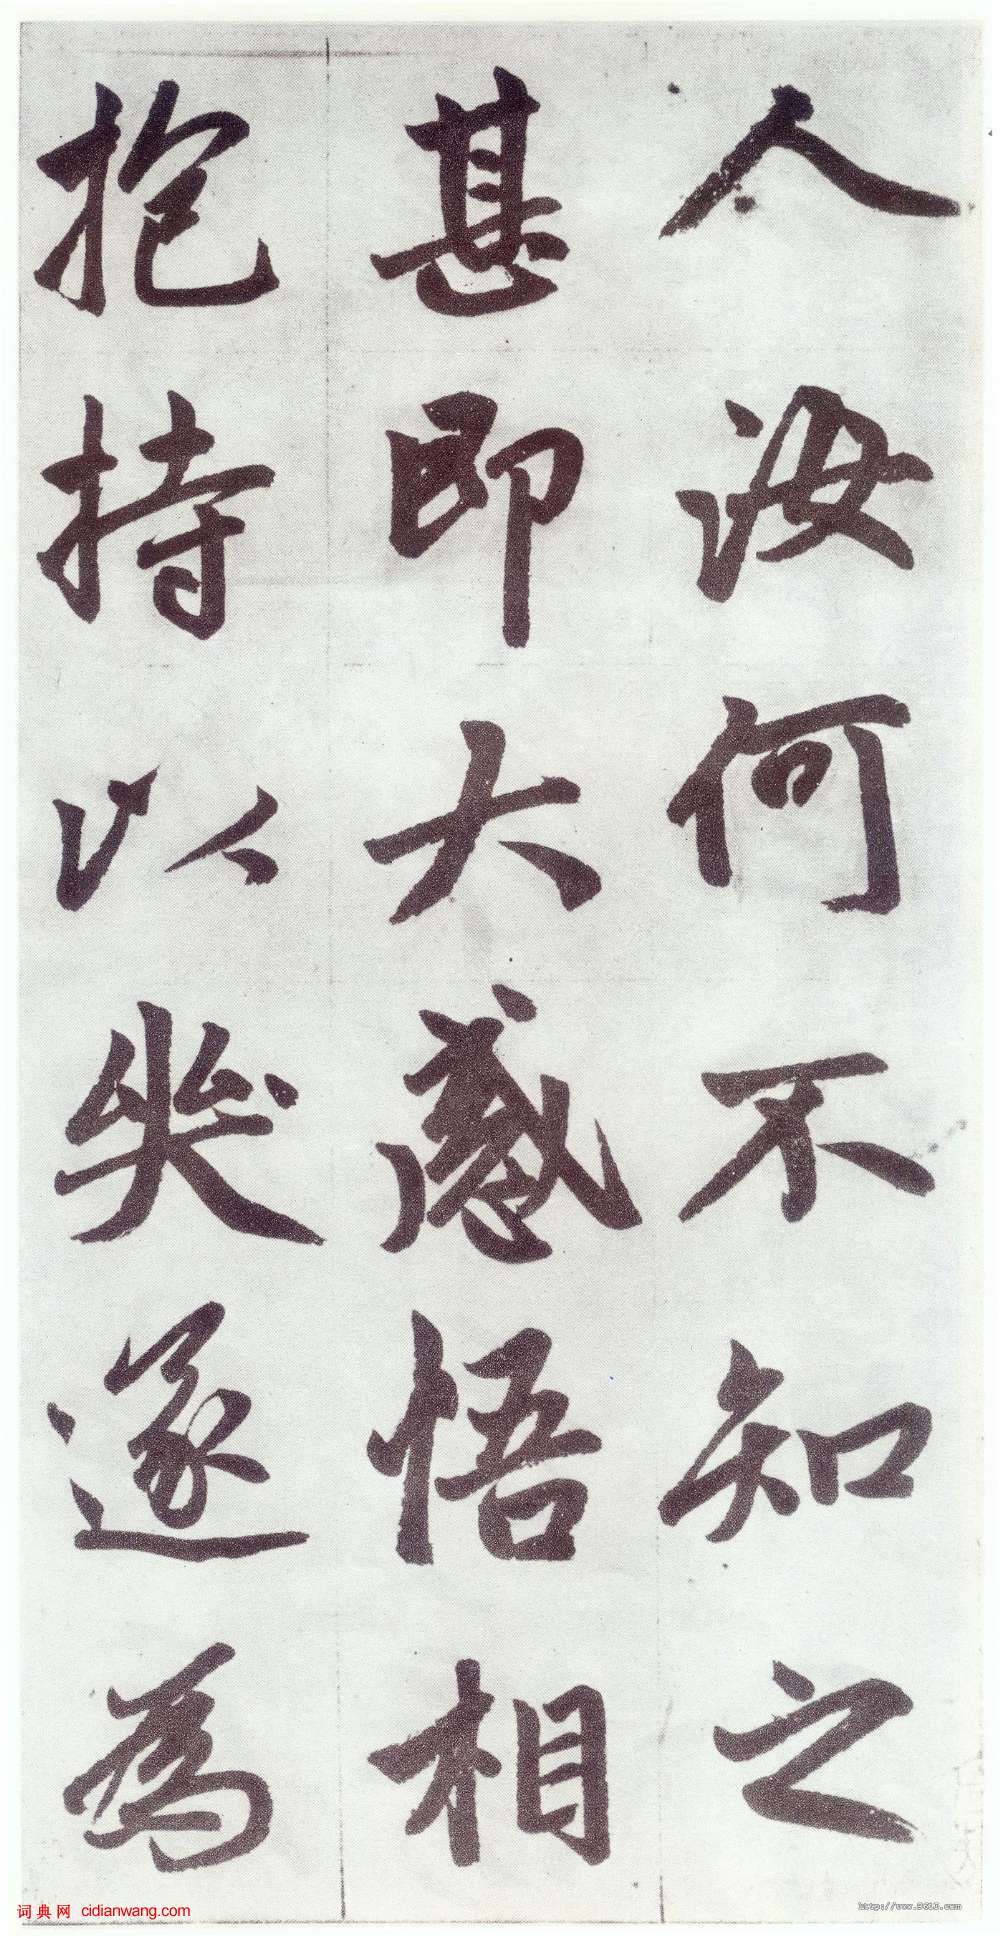 人汝何不知之
甚即大感悟相
抱持以哭遂為
词典网 cidianwang.com
http://www.9610.com